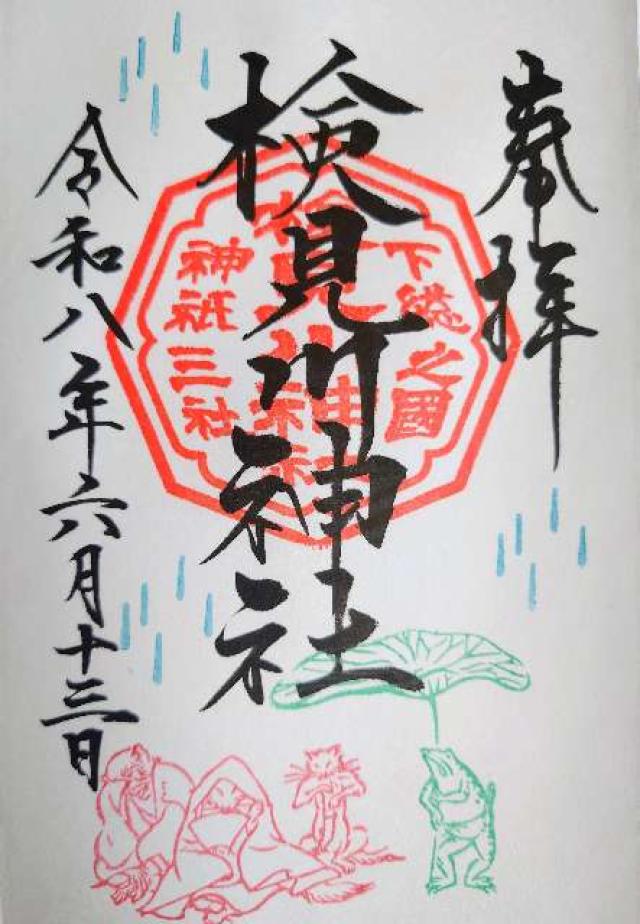 奉拝
下総之國
検見川神社
検見川神社
神祇三社
令和八年六月十三日